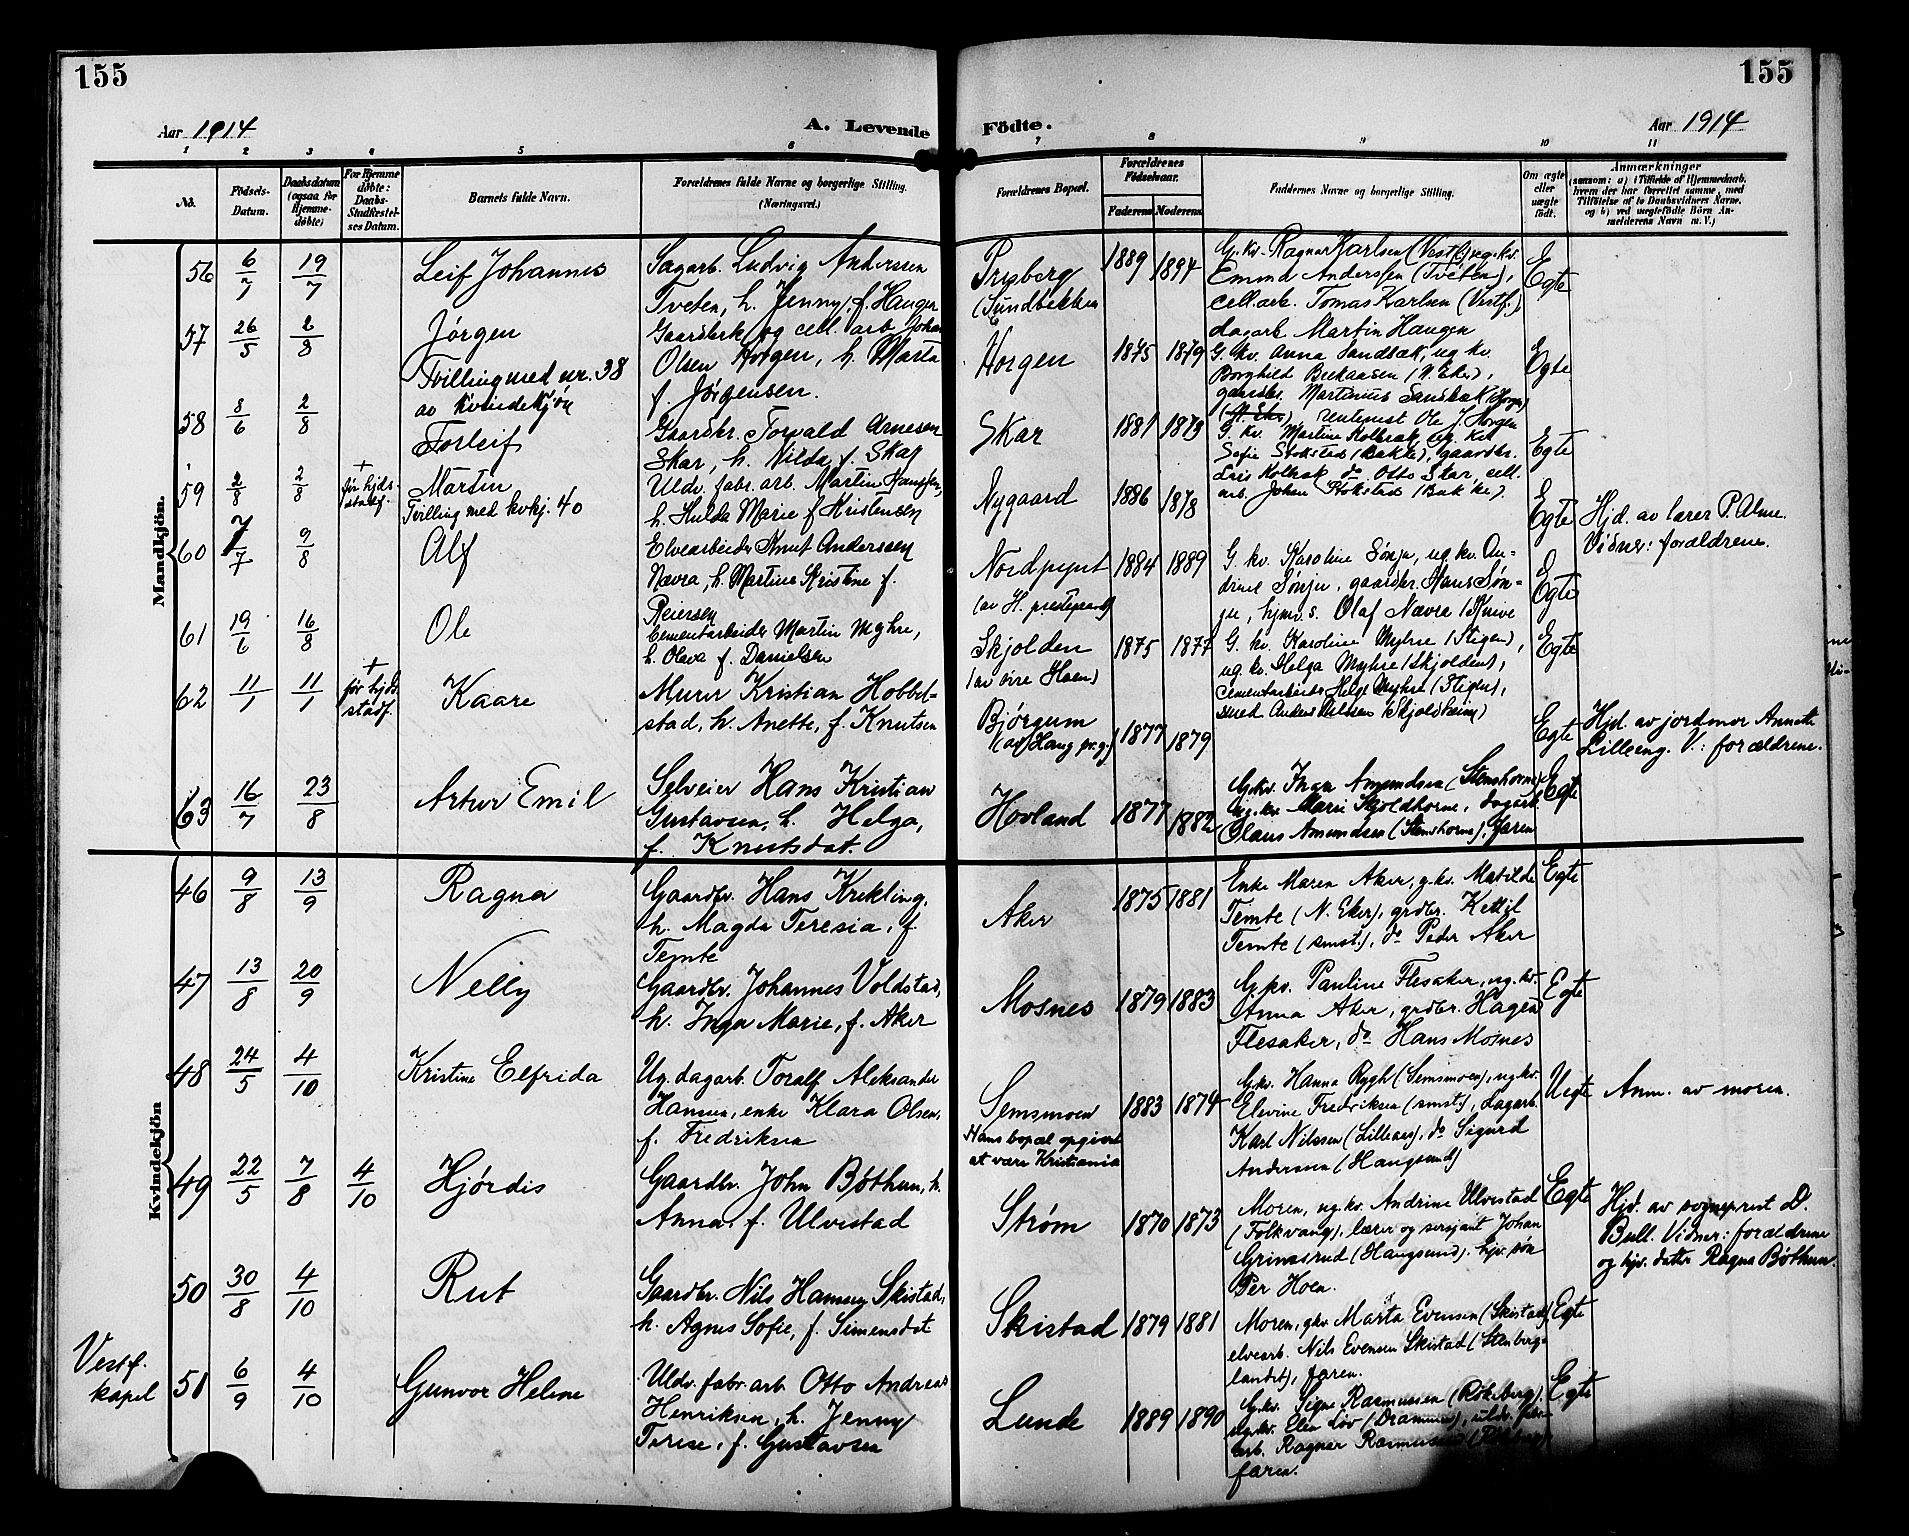 155
155
Aar 1914
A. Levende
Födte.
Aar 1914
1 2 3 4 5 6 7 8 9 10 11
No.
Födsels-
Datum.
Daabsdatum
(ogsaa for
Hjemme-
døbte)
For Hjemme
døbte:
Daabs-
Stadfæstel-
ses Datum.
Barnets fulde Navn.
Forældrenes fulde Navne og borgerlige Stilling.
(Næringsvei.)
Forældrenes Bopæl.
Forældrenes
Födselsaar.
Faderens
Moderens
Faddernes Navne og borgerlige Stilling.
Om ægte
eller
uægte
födt.
Anmærkninger
(saasom: a) i Tilfælde af Hjemmedaab,
hvem der har forrettet samme, med
Tilföielse af to Daabsvidners Navne,
og b) ved uægtefödte Börn An-
melderens Navn m. V.)
Mandkjön.
56 6/7 19/7 Leif Johannes
Sagarb. Ludvig Anderssen
Tveten, h. Jenny, f. Haugen
Prisberg
(Sundbekken
1889 1894
G. kv. Ragna Karlsen (Vestf.) ug. kv.
Emma Anderssen (Tveten),
cell.arb. Tomas Karlsen (Vestf.),
dagarb. Martin Haugen
Egte
57 26/5 2/8 Jørgen
Tvilling med nr. 38
av kvindekjøn
Gaardbrk og cell. arb Johan
Olsen Horgen, h. Marta
f. Jørgensen.
Horgen
1875 1879
G. kv. Anna Sandbak, ug kv.
Borghild Bekaasen (N. Eker),
gaardbr. Martinus Sandbak (Horgen)
rentenist Ole J. Horgen
Egte
58 8/6 2/8 Torleif
Gaardbr. Torvald Arnesen
Skar, h. Nilda f. Skar
Skar
1881 1873
G. kv. Martine Kolbræk, ug. kv.
Sofie Stokstad (Bakke), gaardbr.
Lars Kolbræk do Otto Skar, cell.
arb. Johan Stokstad (Bakke).
Egte
59 2/8 2/8
+
før hjds.
stadf.
Martin
Tvilling med kvkj. 40
Uldv. fabr. arb. Martin Hanssen,
h. Hulda Marie f. Kristensen
Nygaard
1886 1878
Egte
Hjd. av lærer P. Alme.
Vidner: forældrene.
60 7/7 9/8 Alf
Elvearbeider Knut Anderssen
Nævra, h. Martine Kristine f.
Reiersen
Nordpynt
(av H. prestegaard)
1884 1889
G. kv. Karoline Sønju, ug. kv. An-
drine Sønju, gaardbr. Hans Søn-
ju, hjmv. s. Olaf Nævra (Knive
Egte
61 19/6 16/8 Ole
Cementarbeider Martin Myhre,
h. Oleva f. Danielsen
Skjolden
(av øvre Hoen)
1875 1877
G. kv. Karoline Myhre (Stigen),
ug. kv. Helga Myhre (Skjolden),
cementarbeider Helge Myhre (Stigen),
smed Anders Nilsen (Skjoldheim)
Egte
62 11/1 11/1
+
før hjds.
stadf.
Kaare
Murer Kristian Hobbel-
stad, h. Anette, f. Knutsen
Bjørgum
(av Haug pr.g.)
1877 1879
Egte
Hjd. av jordmor Annette
Lilleeng. V.: forældrene.
63 16/7 23/8 Artur Emil
Selveier Hans Kristian
Gustavsen, h. Helga,
f. Knutsdat.
Hovland
1877 1882
G. kv. Inga Amundsen (Stenshorne)
ug. kv. Marie Skjoldhorne, dagarb.
Olaus Amundsen (Stenshorne), faren
Egte
Kvindekjön
46 9/8 13/9 Ragna
Gaardbr. Hans Krekling,
h. Magda Teresia, f.
Temte
Aker
1875 1881
Enke Maren Aker, g. kv. Matilde
Temte (N. Eker), grdbr. Kettil
Temte (smst.), do Peder Aker
Egte
47 13/8 20/9 Nelly
Gaardbr. Johannes Voldstad,
h. Inga Marie, f. Aker
Mosnes
1879 1883
G. kv. Pauline Flesaker, ug. kv.
Anna Aker, grdbr. Hagen
Flesaker, do Hans Mosnes
Egte
48 24/5 4/10 Kristine Elfrida
Ug. dagarb. Toralf Aleksander
Hansen, enke Klara Olsen,
f. Fredriksen
Semsmoen
Hans bopæl opgivet
at være Kristiania
1883 1874
G. kv. Hanna Rygh (Semsmoen), ug. kv.
Elevine Fredriksen (smst.), dagarb.
Karl Nilssen (Lilleaas), do Sigurd
Andersen (Haugsund)
Uegte
Anm. av moren.
49 22/5 7/8 4/10 Hjørdis
Gaardbr. John Bøthun, h.
Anna, f. Ulvestad
Strøm
1870 1873
Moren, ug. kv. Andrine Ulvestad
(Folkvang), lærer og sersjant Johan
Grimsrud (Haugsund). hjv. søn
Per Hoen.
Egte
Hjd. av sogneprest D.
Bull. Vidner: forældrene
og hjv. datter Ragna Bøthun.
50 30/8 4/10 Rut
Gaardbr. Nils Hansen Skistad,
h. Agnes Sofie, f. Simensdat
Skistad
1879 1881
Moren, gkv Marta Evensen (Skistad)
elvearb. Nils Evensen Skistad (Stenberg-
landet), faren.
Egte
Vestf.
kapel
51 6/9 4/10 Gunvor Helene
Uldv. fabr. arb. Otto Andreas
Henriksen, h. Jenny
Terese, f. Gustavsen
Lunde
1889 1890
G. kv. Signe Rasmussen (Rökeberg),
ug. kv. Elen Löv (Drammen), uldv. fabr.
arb. Ragnar Rasmussen
faren.
Egte